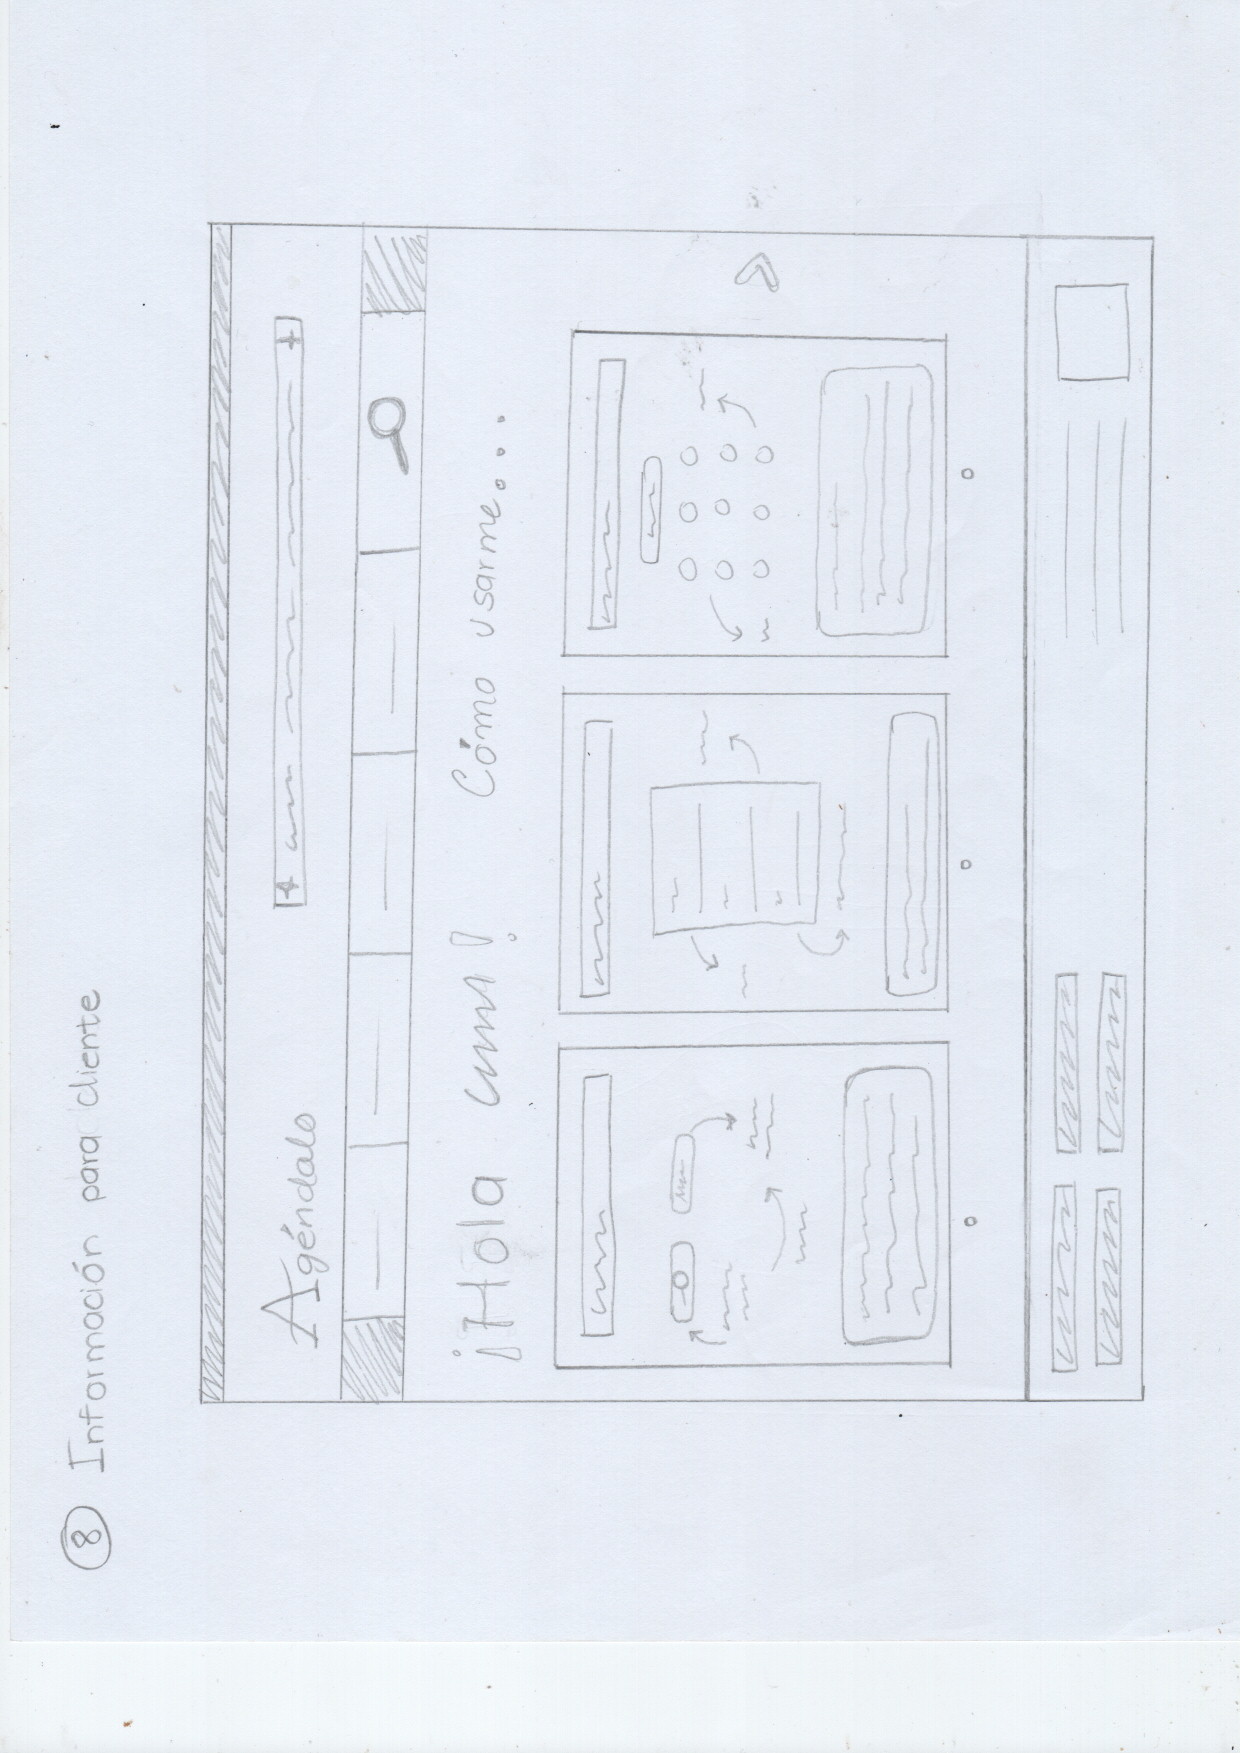 8 Información para cliente
Agéndalo
¡Hola ! Cómo usarme...